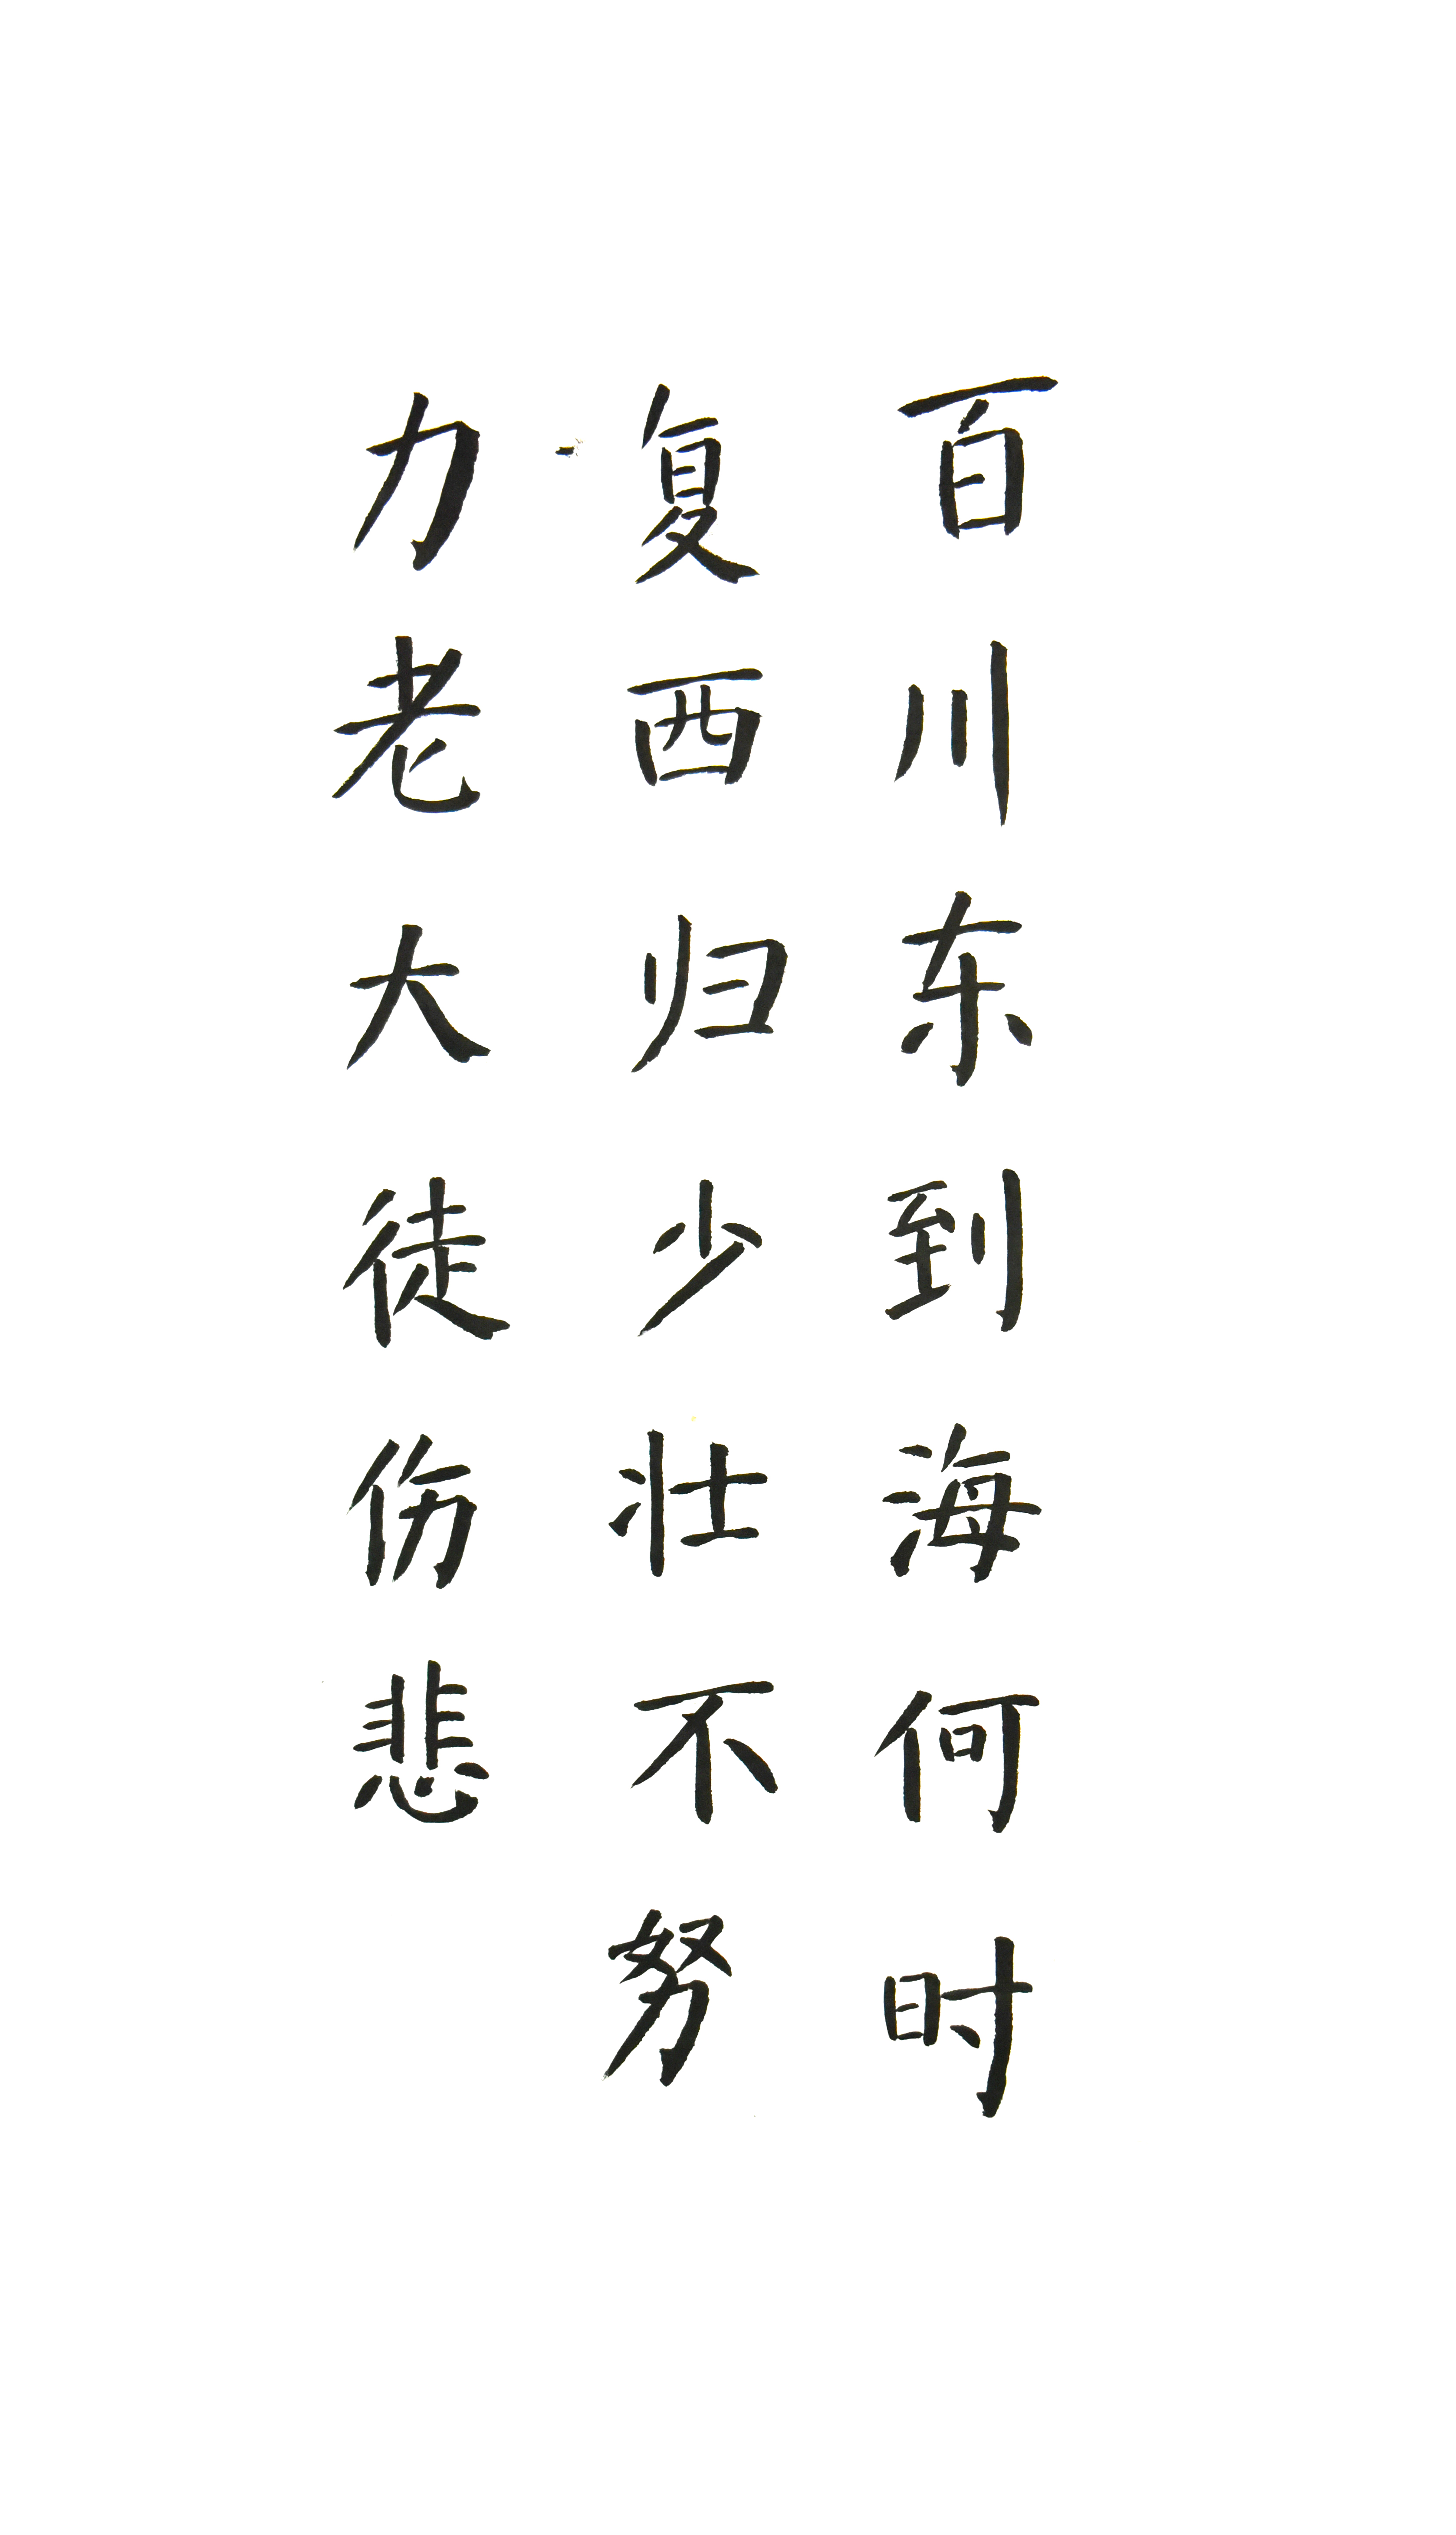 百川东到海何时
复西归少壮不努
力老大徒伤悲